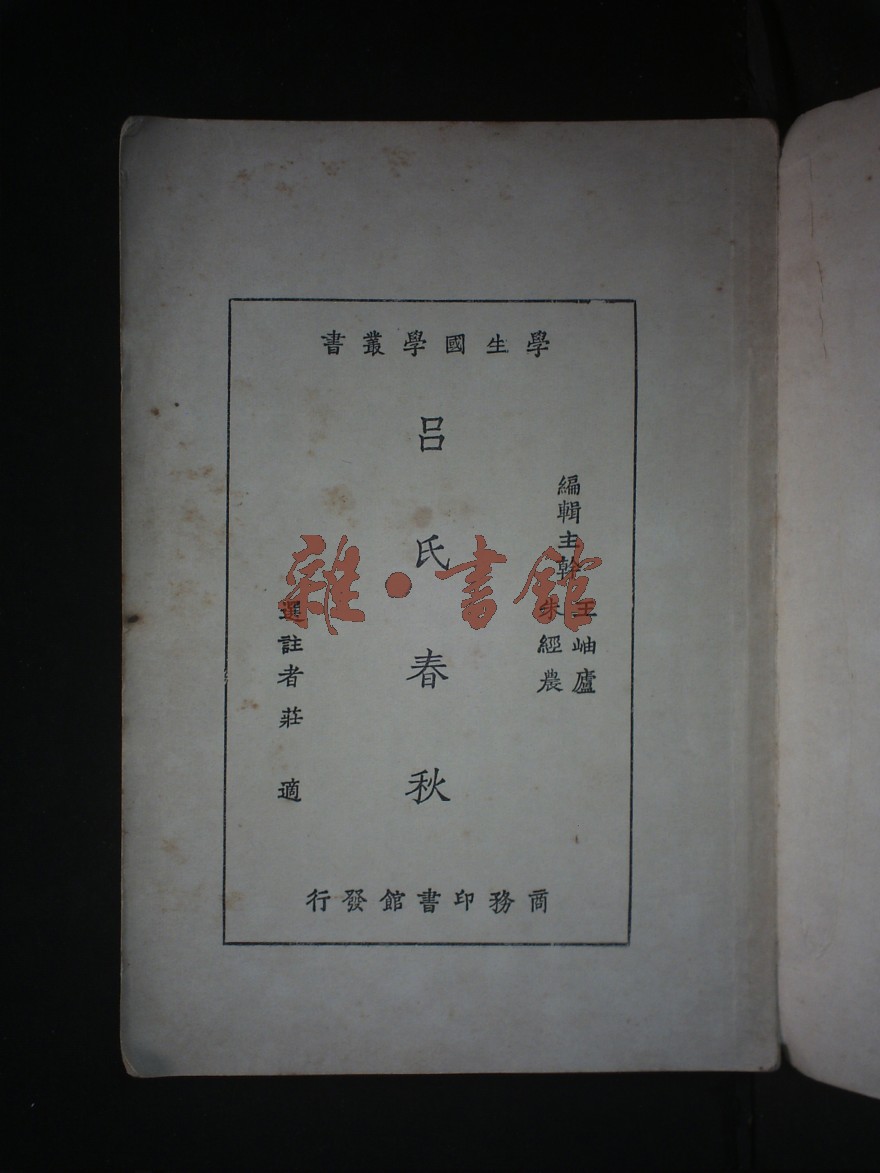 學生國學叢書
編輯主幹
王岫廬
朱經農
呂氏春秋
選註者莊適
商務印書館發行
雜·書館